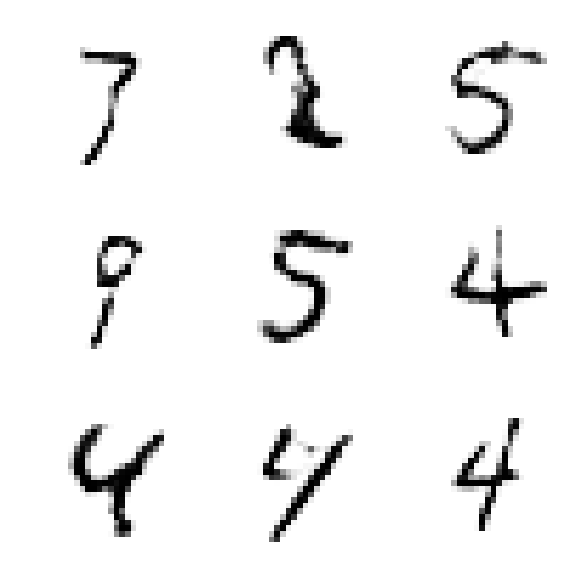 7 2 5
9 5 4
4 4 4